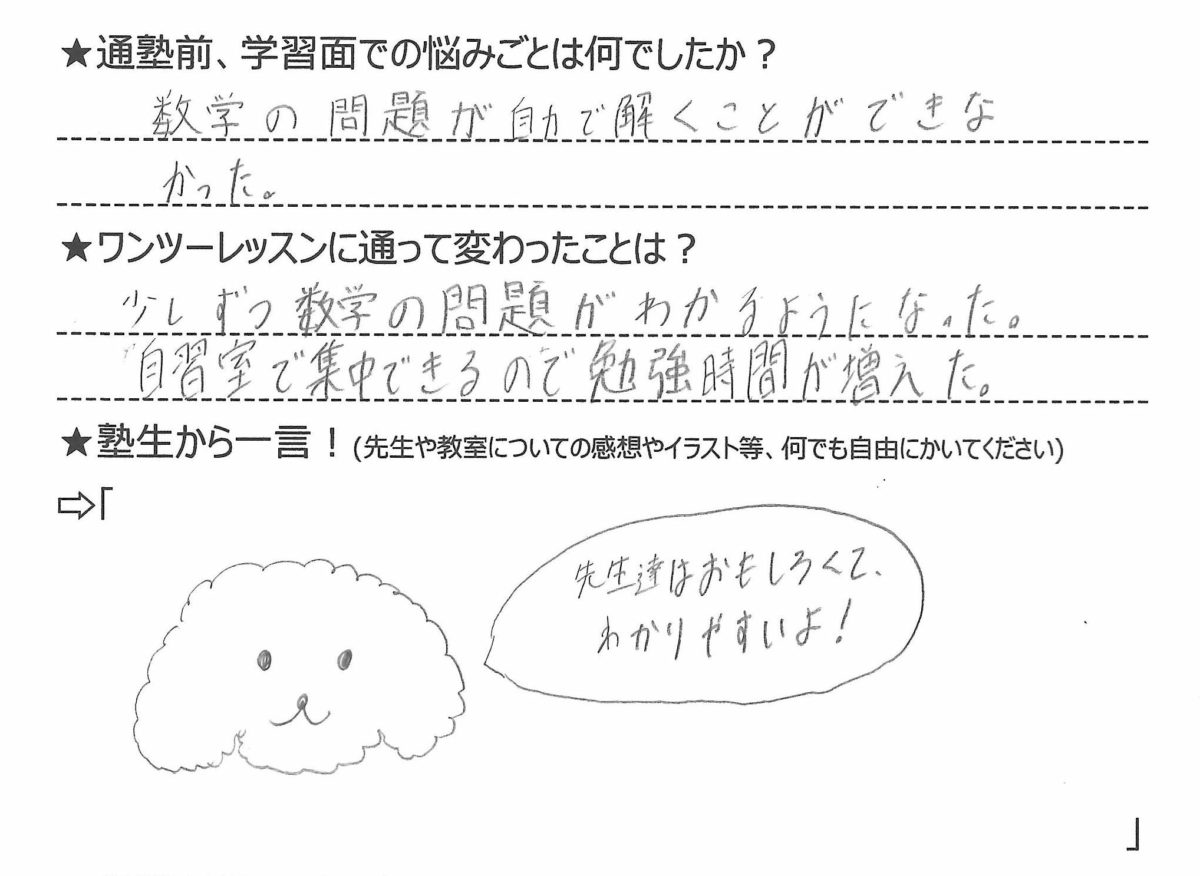 ★通塾前、学習面での悩みごとは何でしたか？
数学の問題が自力で解くことができな
かった。
★ワンツーレッスンに通って変わったことは？
少しずつ数学の問題がわかるようになった。
自習室で集中できるので勉強時間が増えた。
★塾生から一言！(先生や教室についての感想やイラスト等、何でも自由にかいてください)
⇨「
先生達はおもしろくて、
わかりやすいよ！
」